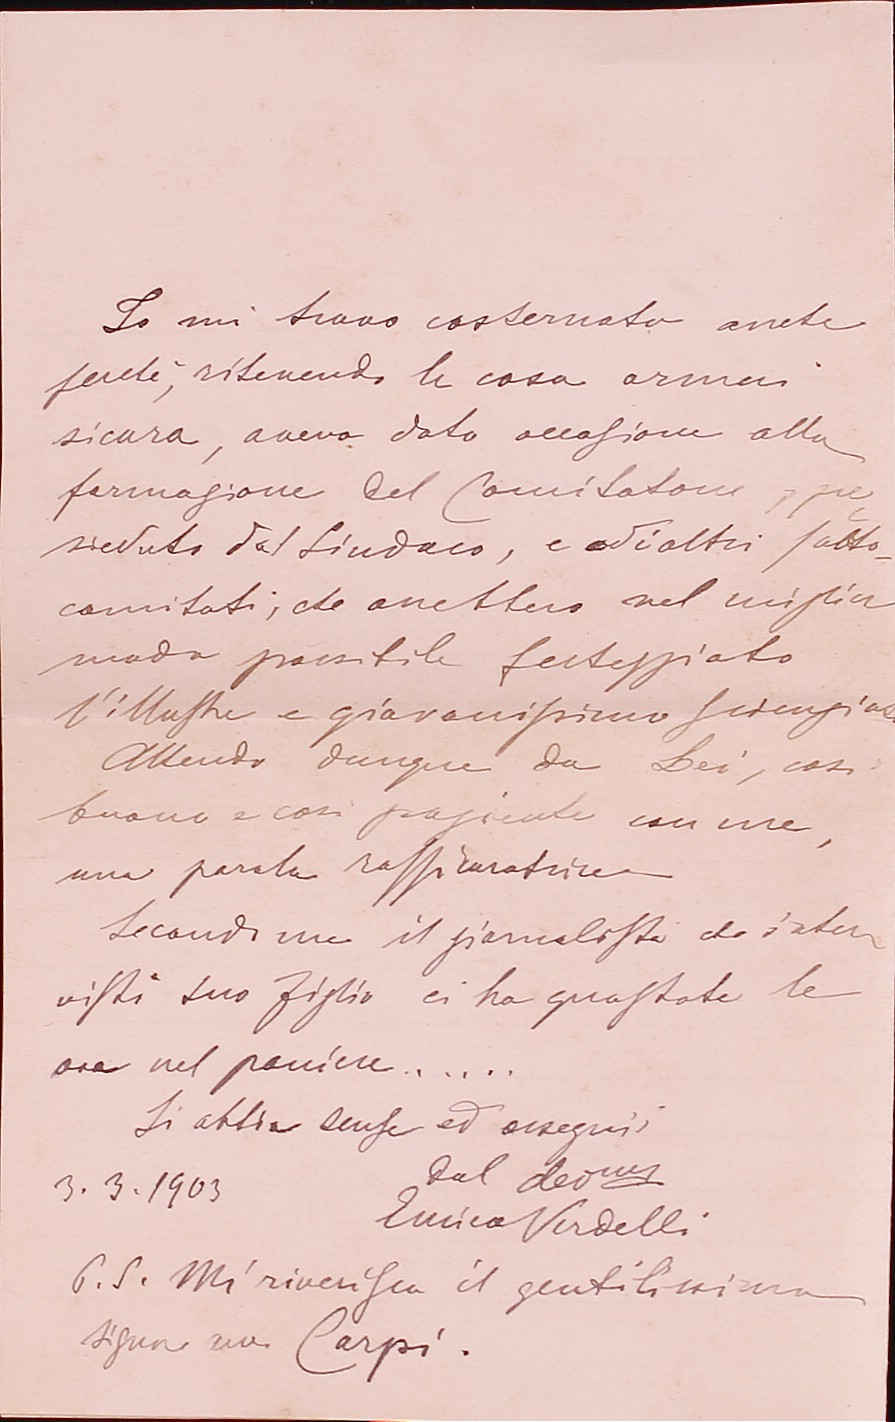 Io mi trovo costernato anche
perchè, ritenendo la cosa ormai
sicura, aveva dato occasione alla
formazione del Comitatone, pre
sieduto dal Sindaco, e di altri sotto-
comitati, che avrebbero nel miglior
modo possibile festeggiato
l'illustre e giovanissimo scienziato.
Attendo dunque da Lei, così
buono e così paziente con me,
una parola rassicuratrice
Secondo me il giornalista che inter
vistò suo figlio ci ha guastate le
ova nel paniere.....
Si abbia scuse ed ossequii
dal devmo
3.3.1903
Enrico Verdelli
P.S. Mi riverisca il gentilissimo
signor Carpi.